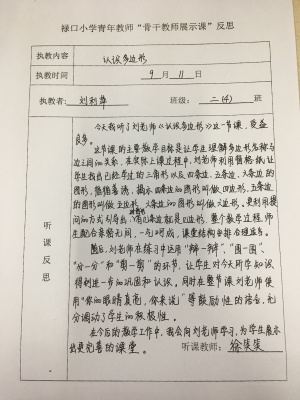 禄口小学青年教师“骨干教师展示课”反思
执教内容 认识多边形
执教时间 9月11日
执教者: 刘利萍 班级: 二(4)班
听课反思
今天我听了刘老师《认识多边形》这一节课,受益
良多。
这节课的主要教学目标是让学生理解多边形名称与
边之间的关系,在实际上课过程中,刘老师利用情格纸,让
学生找出已经学过的三角形以及四条边、五条边、六条边的
图形,循循善诱,揭示四条边的图形叫做四边形,五条边
的图形叫做五边形,六条边的图形叫做六边形,更利用提
问的方式引导出:有几条边就是几边形,整个教学过程,师
生配合亲密无间,一气呵成,课堂结构安排合理连贯。
随后,刘老师在练习中运用“辩一辩”、“围一围”、
“分一分”和“剪一剪”的环节,让学生对今天所学知识
得到进一步的巩固和认识。同时在整节课刘老师使用
“你的眼睛真亮,你来说”等鼓励性的语言,充
分调动了学生的积极性。
在今后的教学工作中,我会向刘老师学习,为学生展示
出更完善的课堂。
听课教师: 徐笑笑